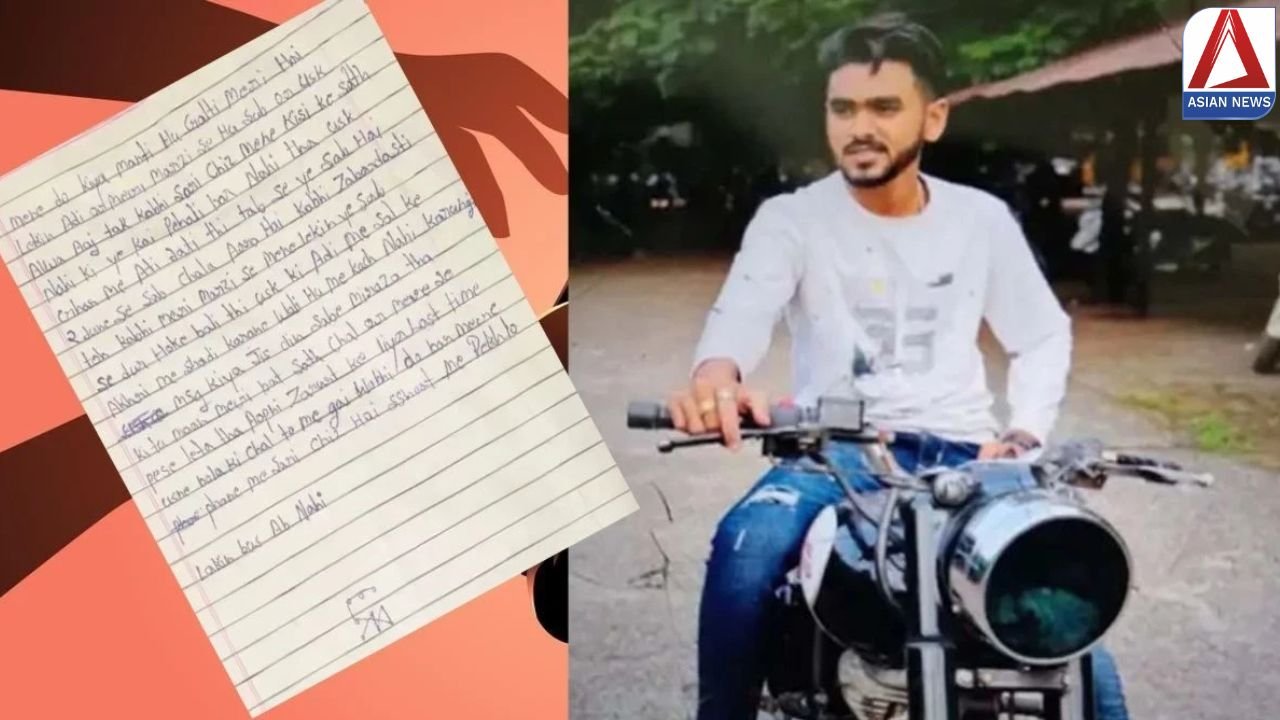 mene do kiya manti Hu Galti Meri Hai
Lekin Adi or Meeru Marzi se Hu sab or usk
Alwa Aaj tak kabhi Sari Chiz Mene Kisi ke sath
Nahi ki ye koi Pehali bar Nahi tha usk
me Ati Jati thi tab se ye sab Hai
2 June se sab chala Aara Hai kabhi Zabardasti
toh kabhi meri marzi se mene lekin ye sab
se dur Hoke bati thi usk ki Adi me sal ke
Akhri me shadi karane wali Hu me kuch Nahi karungi
msg kiya Jis din sabe tha
kitu meri bat sath chal or meere se
pese leta tha ke liya Last time
usne balaki chal to me gai do bar meene
phone me sari chiz Hai sshast me Dekhlo
Lakin bas Ab Nahi
ASIAN NEWS